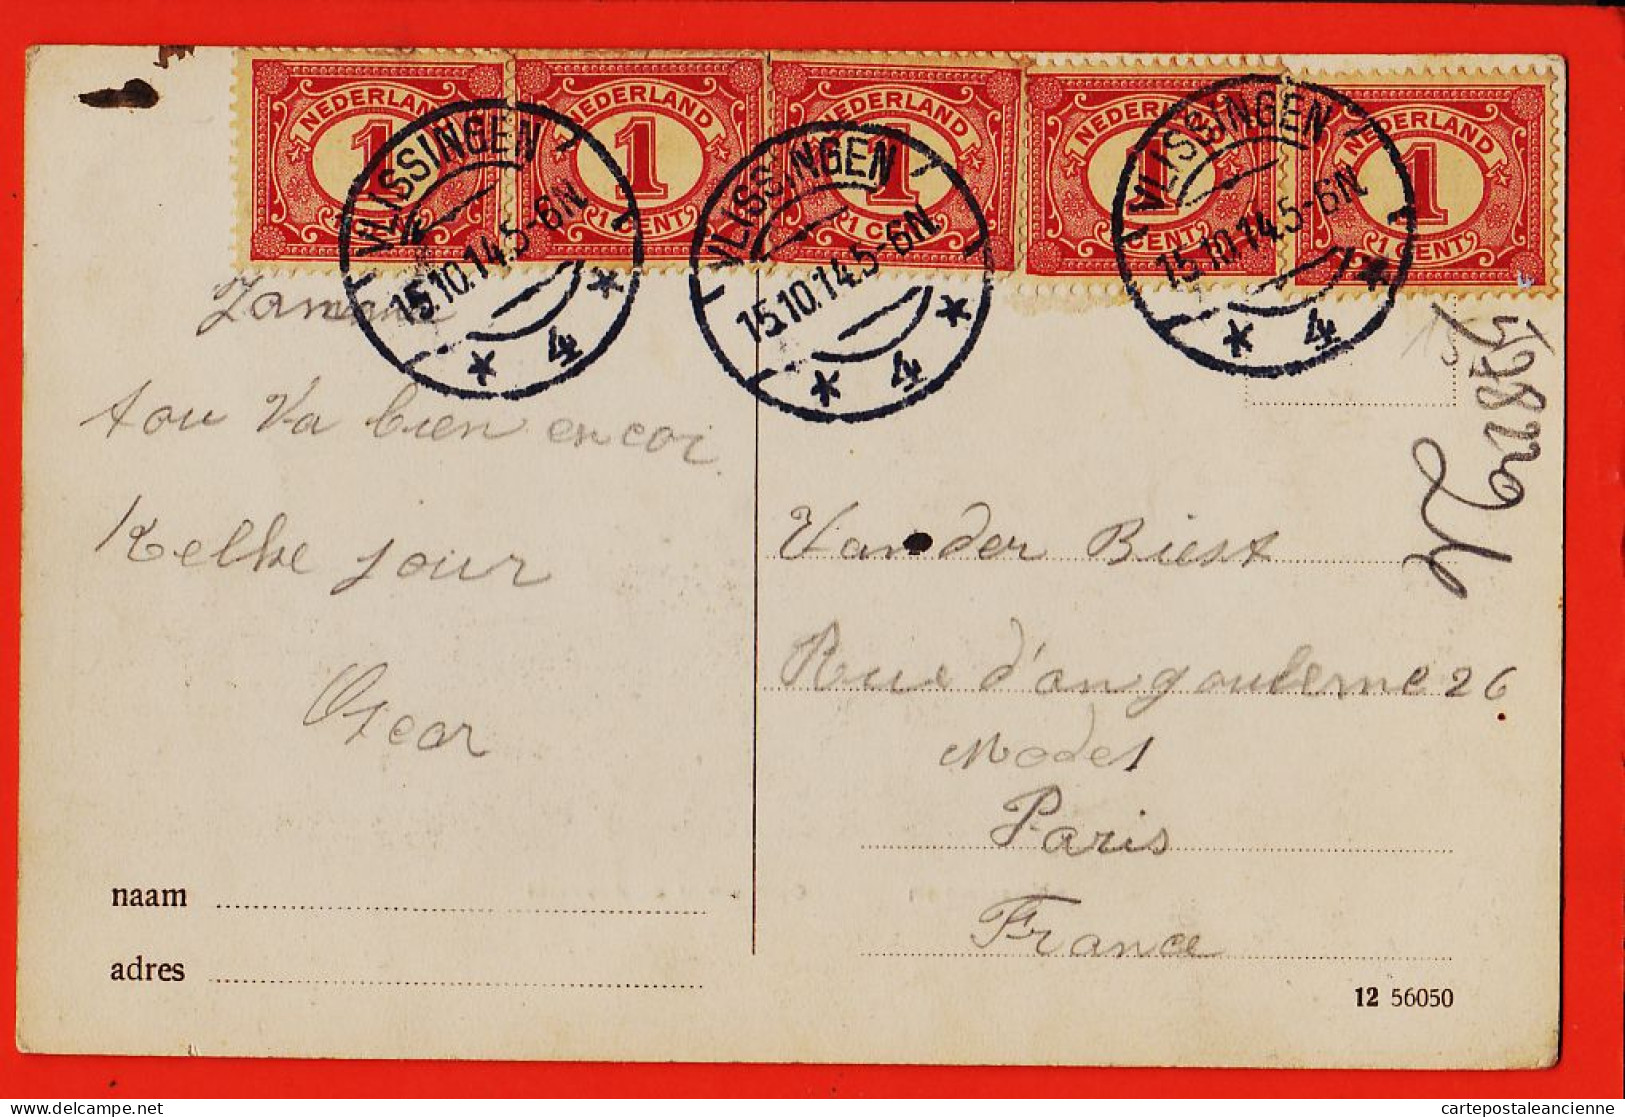 NEDERLAND 1 1 CENT
NEDERLAND 1 1 CENT
NEDERLAND 1 1 CENT
NEDERLAND 1 1 CENT
NEDERLAND 1 1 CENT
VLISSINGEN
15.10.14.5-6N
* 4 *
VLISSINGEN
15.10.14.5-6N
* 4 *
VLISSINGEN
15.10.14.5-6N
* 4 *
tou Va bien encoi
Kelke jour
Oscar
naam
adres
Van der Biest
Rue d'angouleme 26
Model
Paris
France
12 56050
cartepostaleancienne